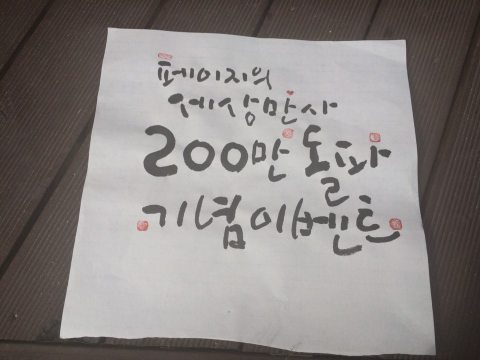 페이지의
세상만사
200만 돌파
기념이벤트